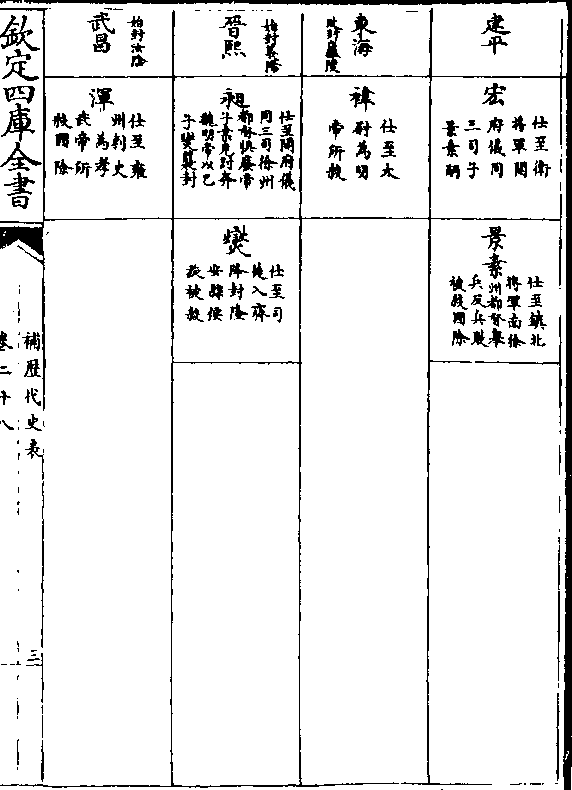 建平
宏
仕至衛
將軍開
府儀同
三司子
景素嗣
景素
仕至鎮北
將軍南徐
州都督舉
兵反兵敗
被殺國除
東海
改封廬陵
禕
仕至太
尉為明
帝所殺
晉熙
始封義陽
昶
仕至開府儀
同三司徐州
都督懼廢帝
子業見討奔
魏明帝以己
子燮襲封
燮
仕至司
徒入齊
降封陰
安縣侯
旋被殺
武昌
始封汝陰
渾
仕至雍
州刺史
為孝
武帝所
殺國除
欽定四庫全書
補歷代史表
卷二十八
三